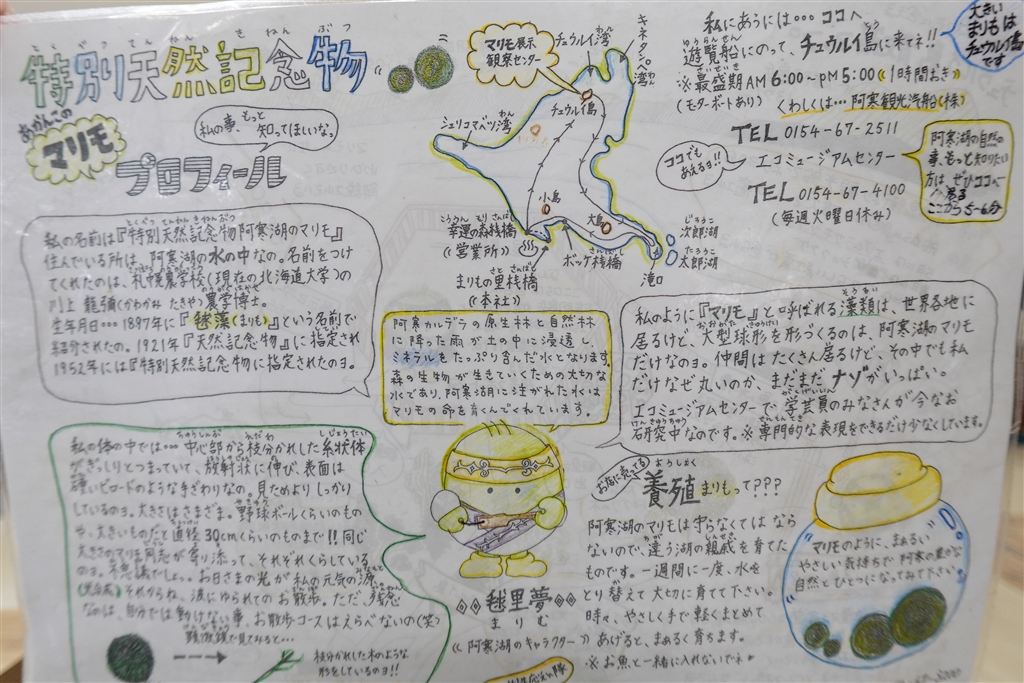 特別天然記念物
とくべつ てんねん きねん ぶつ
あかんこの
マリモ
プロフィール
私の事、もっと
知ってほしいな。
マリモ展示
観察センター
チュウルイ湾
キネタンペ湾
チュウルイ島
シュリコマベツ湾
小島
大島
幸運の森桟橋
こううん もり さんばし
(営業所)
ボッケ桟橋
まりもの里桟橋
(本社)
次郎湖
じろうこ
太郎湖
たろうこ
滝口
私にあうには…ココへ
遊覧船にのって、チュウルイ島に来てネ!!
ゆうらんせん
※最盛期AM6:00~PM5:00(1時間おき)
(モーターボートあり) くわしくは…阿寒観光汽船(株)
TEL 0154-67-2511
大きい
まりもは
チュウルイ島
です
ココでも
あえるヨ!!
エコミュージアムセンター
TEL 0154-67-4100
(毎週火曜日休み)
阿寒湖の自然の
事、もっと知りたい
方は ぜひココへ
ここから5~6分
私の名前は『特別天然記念物阿寒湖のマリモ』
住んでいる所は、阿寒湖の水の中なの。名前をつけ
てくれたのは、札幌農学校(現在の北海道大学)の
川上 龍彌(かわかみ たきや)農学博士。
生年月日…1897年に『毬藻(まりも)』という名前で
紹介されたの。1921年『天然記念物』に指定され
1952年には『特別天然記念物に指定されたのヨ。
阿寒カルデラの原生林と自然林
に降った雨が土の中に浸透し、
ミネラルをたっぷり含んだ水となります。
森の生物が生きていくための大切な
水であり、阿寒湖に注がれた水は
マリモの命を育くんでくれています。
私のように『マリモ』と呼ばれる藻類は、世界各地に
居るけど、大型球形を形づくるのは、阿寒湖のマリモ
だけなのヨ。仲間はたくさん居るけど、その中でも私
だけなぜ丸いのか、まだまだナゾがいっぱい。
エコミュージアムセンターで、学芸員のみなさんが今なお
研究中なのです。※専門的な表現をできるだけ少なくしています。
私の体の中では…中心部から枝分かれした糸状体
がぎっしりとつまっていて、放射状に伸び、表面は
硬いビロードのような手ざわりなの。見ためよりしっかり
しているのヨ。大きさはさまざま。野球ボールくらいのもの
や、大きいものだと直径30cmくらいのものまで!!同じ
大きさのマリモ同志が寄り添って、それぞれくらしている
のヨ。不思議でしょ。お日さまの光が私の元気の源
(光合成)それからね、波にゆられてのお散歩。ただ、残念
なのは、自分では動けない事、お散歩コースはえらべないの(笑)
顕微鏡で見てみると…
枝分かれした木のような
形をしているのヨ!!
毬里夢
まりむ
(阿寒湖のキャラクター)
お店に売ってる
養殖まりもって???
ようしょく
阿寒湖のマリモは守らなくては なら
ないので、違う湖の親戚を育てた
ものです。一週間に一度、水を
とり替えて大切に育てて下さい。
時々、やさしく手で軽くまとめて
あげると、まぁるく育ちます。
※お魚と一緒に入れないでネ
マリモのように、まぁるい
やさしい気持ちで阿寒の豊かな
自然とひとつになってみて下さい。